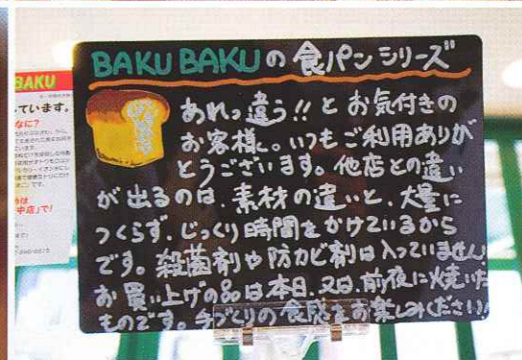 BAKU BAKUの食パンシリーズ
あれっ違う!!とお気付きの
お客様。いつもご利用ありが
とうございます。他店との違い
が出るのは、素材の違いと、大量に
つくらず、じっくり時間をかけているから
です。殺菌剤や防カビ剤は入っていません。
お買い上げの品は本日、又は、前夜に焼いた
ものです。手づくりの食感をお楽しみください!
BAKU
ています。
なに?
中店」で!